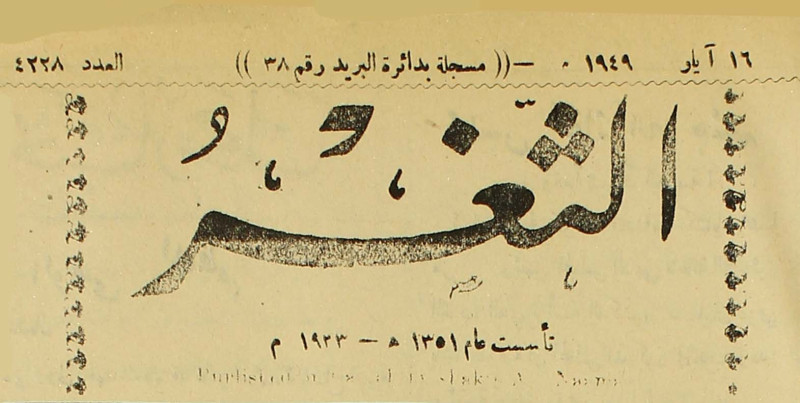 ١٦ آيار ١٩٤٩ ٠ —(( مسجلة بدائرة البريد رقم ٣٨ )) العدد ٤٢٢٨
الثغر
تأسست عام ١٣٥١ ھ — ١٩٣٣ م